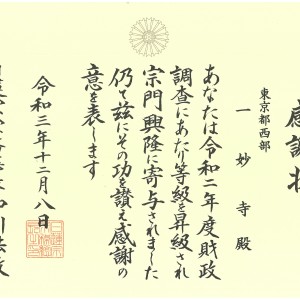 感謝状
東京都西部
一妙寺殿
あなたは令和二年度財政
調査にあたり等級を昇級され
宗門興隆に寄与されました
仍て茲にその功を讃え感謝の
意を表します
令和三年十二月八日